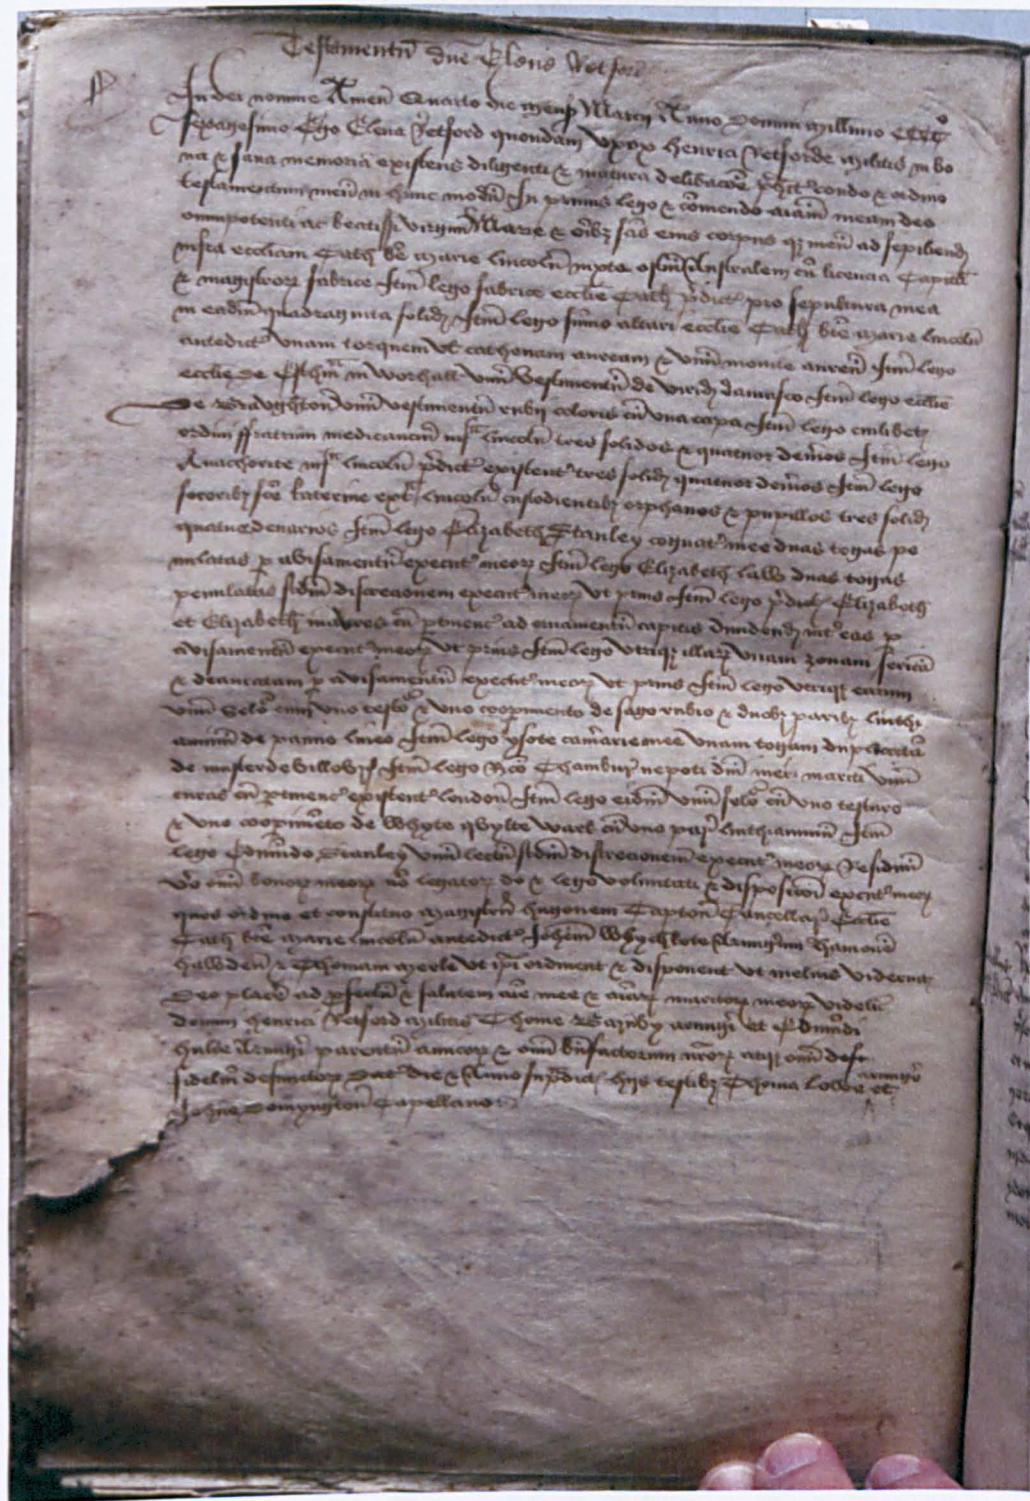 Testamentū dn̄e Elene Retford
In dei nomine Amen Quarto die mens̄ Marcij Anno domini millīmo CCCC°
sexagesimo Ego Elena Retford quondam vxor Henrici Retforde militis in bo
na & sana memoria existens diligenti & matura delibacōe condo & ordino
testamentum meū in hunc modū In primis lego & cōmendo aīam meam deo
omnipotenti ac beatissī virginī Marie & oībȝ scīs eius corpus qȝ meū ad sepeliend
infra eccliam Cath bē Marie lincolñ iuxta ostiū Australem cū licencia Capitli
& magistroꝝ fabrice Itm̄ lego fabrice ecclīe Cath p̄dict pro sepultura mea
in eadm̄ quadraginta solid Itm̄ lego sūmo altari ecclīe Cath btē Marie lincolñ
antedict vnam torquem vł cathenam auream & vnū monile aureū Itm̄ lego
ecclīe de in Worhall vnū vestimentū de virid damasco Itm̄ lego ecclīe
de Braughton vnū vestimentū rubij coloris cū vna capa Itm̄ lego cuilibet
ordini ffratrum mēdicanciū infᵃ lincolñ tres solidos & quatuor deños Itm̄ lego
Anachorite infᵃ lincolñ p̄dict existent tres solid quatuor deños Itm̄ lego
sororibȝ scē katerine extᵃ lincolñ custodientibȝ orphanos & pupillos tres solid
quatuor denarios Itm̄ lego Elizabeth Stanley cognat mee duas togas pe
nulatas p̱ avisamentū execut meoꝝ Itm̄ lego Elizabeth laws duas togas
penulatas scdm̄ discrecionem execut meoꝝ vt prius Itm̄ lego p̄dict Elizabeth
et Elizabeth cū ptinent ad ornamentū capitis diuidend int eas p̱
avisamentū execut meoꝝ vt prius Itm̄ lego vtriqȝ illaꝝ vnam zonam sericā
& deauratam p̱ avisamentū execut meoꝝ vt prius Itm̄ lego vtriqȝ earum
vnū cum vno & vno coopimento de sago rubio & duobȝ paribȝ linthi
aminū de panno lineo Itm̄ lego ysote camarie mee vnam togam duplicatā
de Itm̄ lego Rco Chambur nepoti dnī mei mariti vnū
cū ptinent existent londoñ Itm̄ lego eidm̄ vnū cū vno testuro
& vno coopimeto de Whyte qwylte wark cū vno par linthiaminū Itm̄
lego Edmūdo Stanley vnū lectū scdm̄ discrecionem execut meoꝝ Residuū
vo oīm bonoꝝ meoꝝ nō legatoꝝ do & lego voluntati & disposicōi execut meoꝝ
quos ordino et constituo Magistrū hugonem Tapton Cancellar Ecclīe
Cath btē Marie lincolñ antedict Johēm Whychkote Armigum hamonē
hawden & Thomam Merle vt ip̄i ordinent & disponent vt melius videritꝝ
deo placē ad pfectū & salutem aīe mee & aīarꝝ maritoꝝ meoꝝ videlicꝫ
domini henrici Retford militis Thome Barnby armigi et Edmūdi
Armigi parentū amicoꝝ & oīm bn̄factorum nrōꝝ atqȝ oīm
fidelm̄ defunctoꝝ Dat die & Anno supdict hijs testibȝ Thoma lowe armigo et
Johne Donyngton Capellano